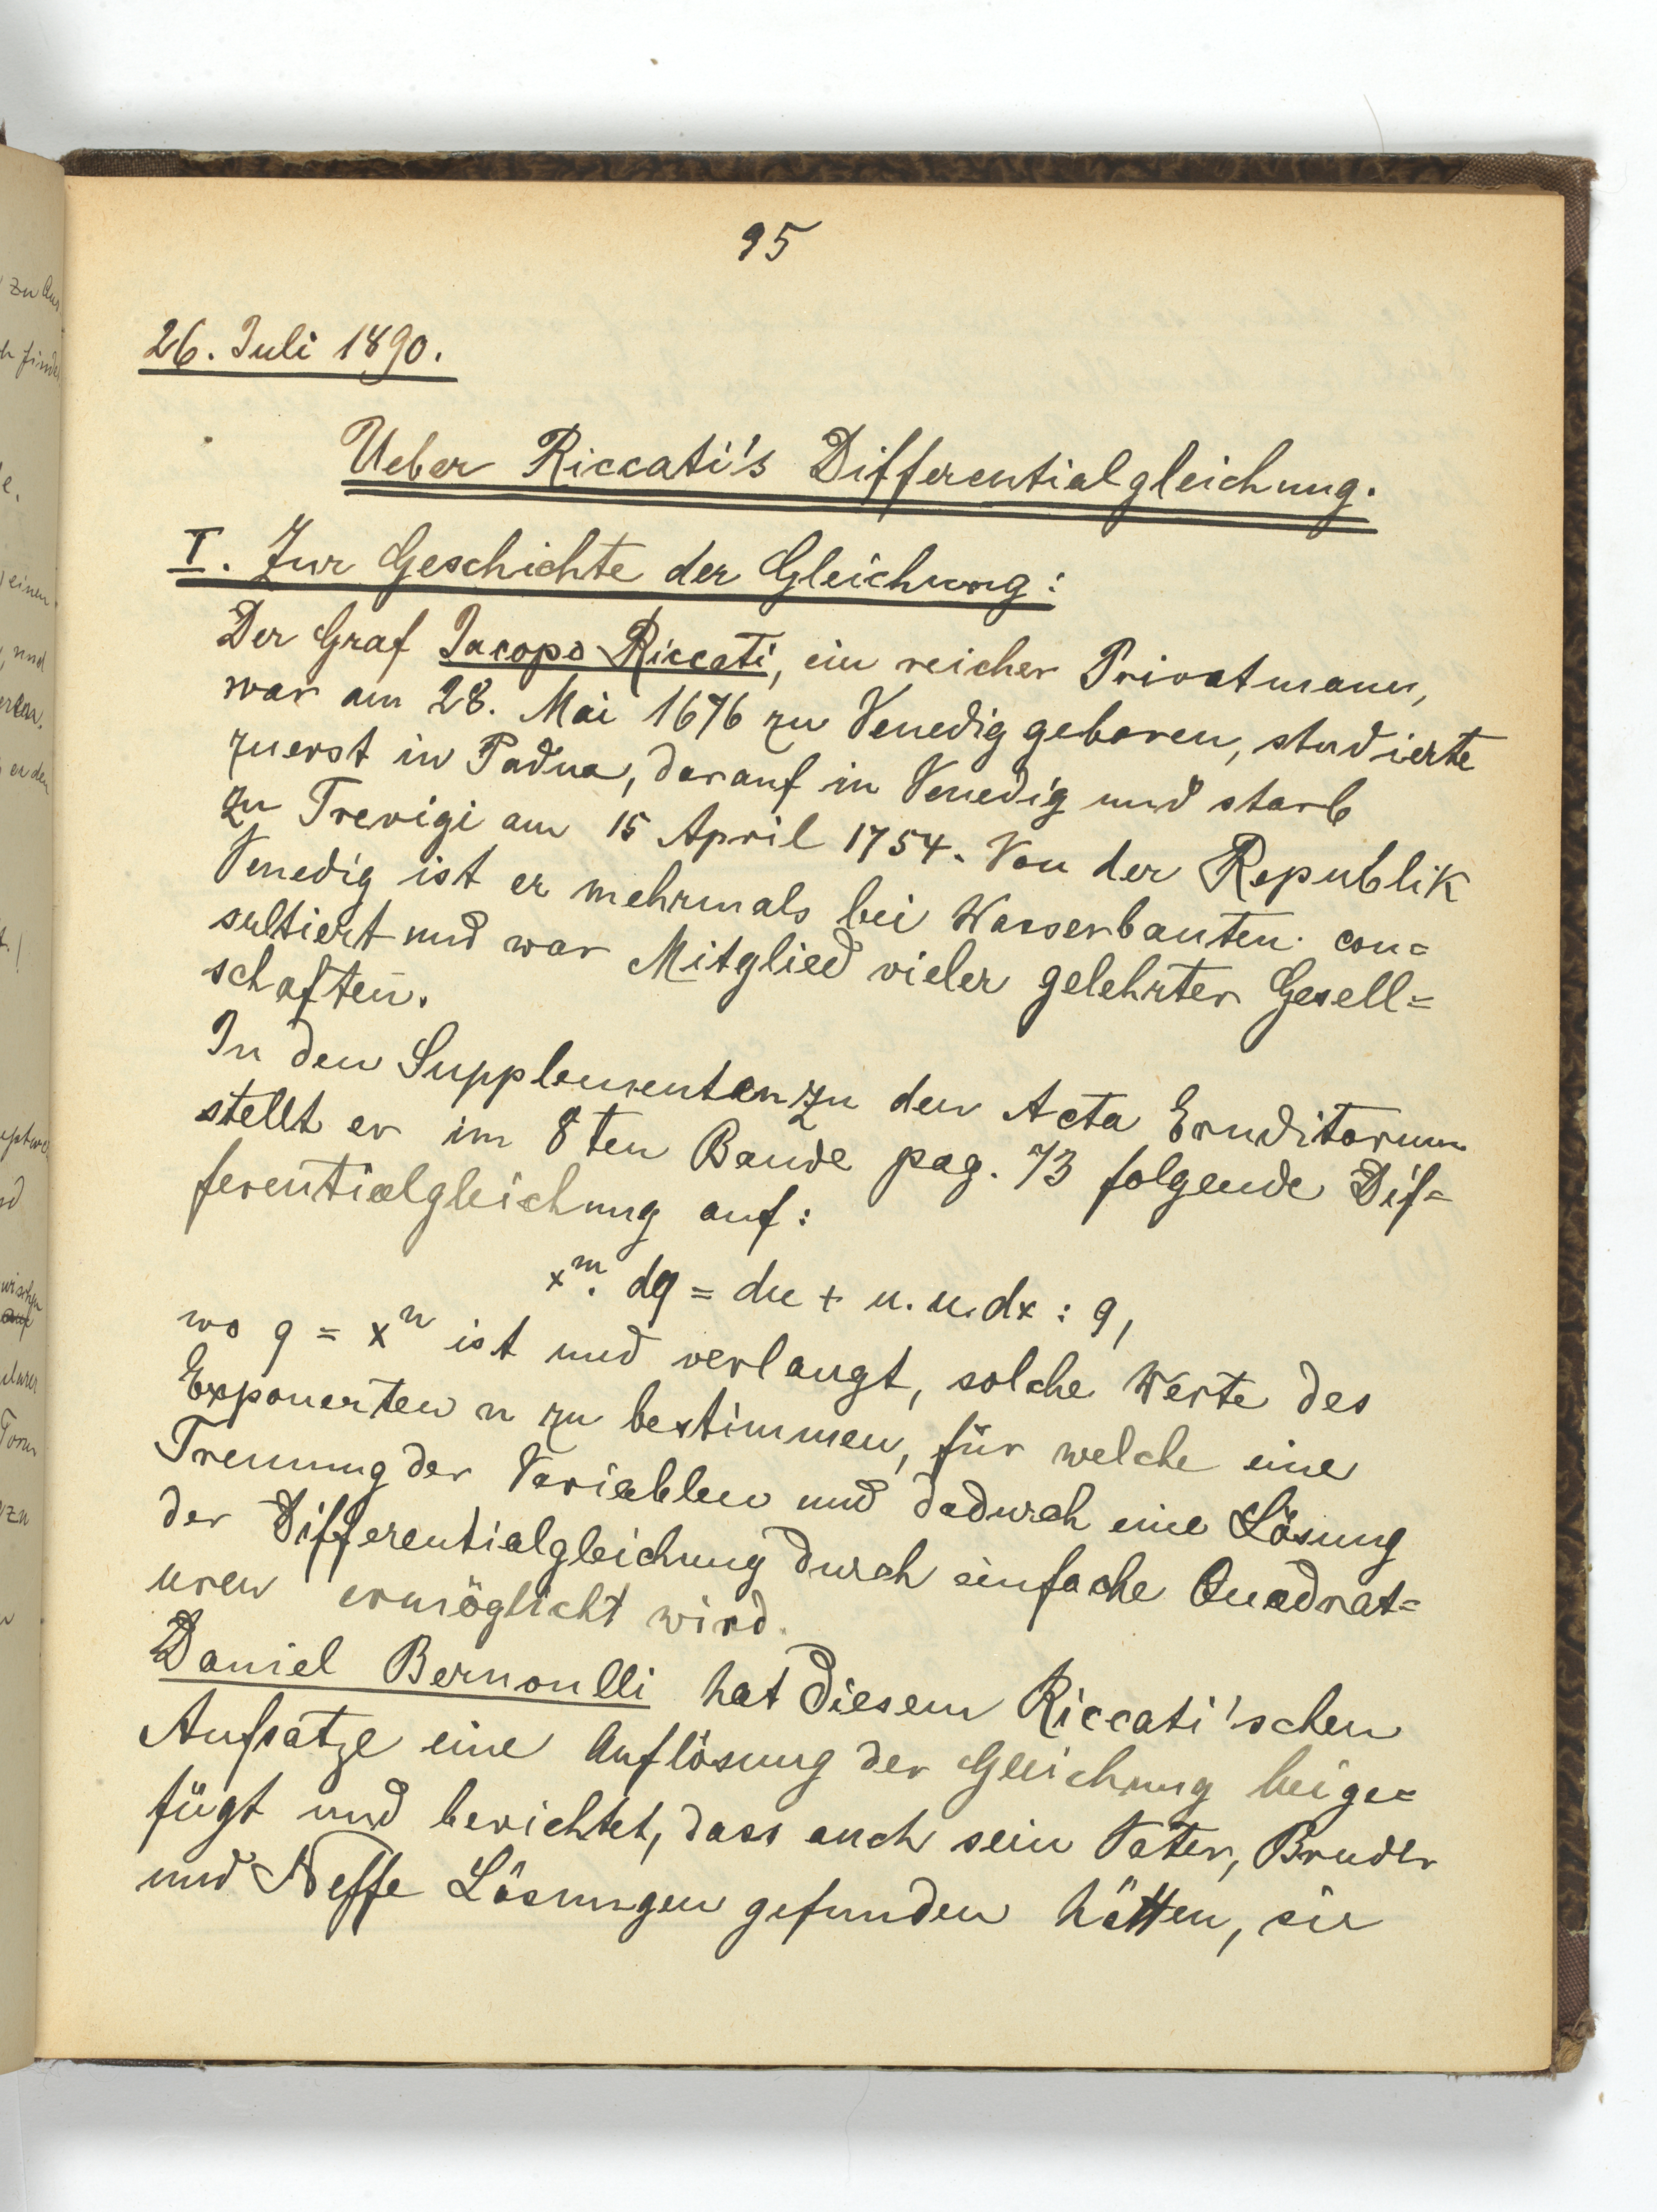 95
26. Juli 1890.
Ueber Riccati's Differentialgleichung.
I. Zur Geschichte der Gleichung:
Der Graf Jacopo Riccati, ein reicher Privatmann,
war am 28. Mai 1676 zu Venedig geboren, studierte
zuerst in Padua, darauf in Venedig und starb
zu Trevigi am 15 April 1754. Von der Republik
Venedig ist er mehrmals bei Wasserbauten con=
sultiert und war Mitglied vieler gelehrter Gesell=
schaften.
In den Supplementen zu den Acta Eruditorum
stellt er im 8ten Bande pag. 73 folgende Dif=
ferentialgleichung auf:
x^m. dq = du + u.u.dx : q,
wo q = x^n ist und verlangt, solche Werte des
Exponenten n zu bestimmen, für welche eine
Trennung der Variablen und dadurch eine Lösung
der Differentialgleichung durch einfache Quadrat=
uren ermöglicht wird.
Daniel Bernoulli hat diesem Riccati'schen
Aufsatze eine Auflösung der Gleichung beige=
fügt und berichtet, dass auch sein Vater, Bruder
und Neffe Lösungen gefunden hätten, sie